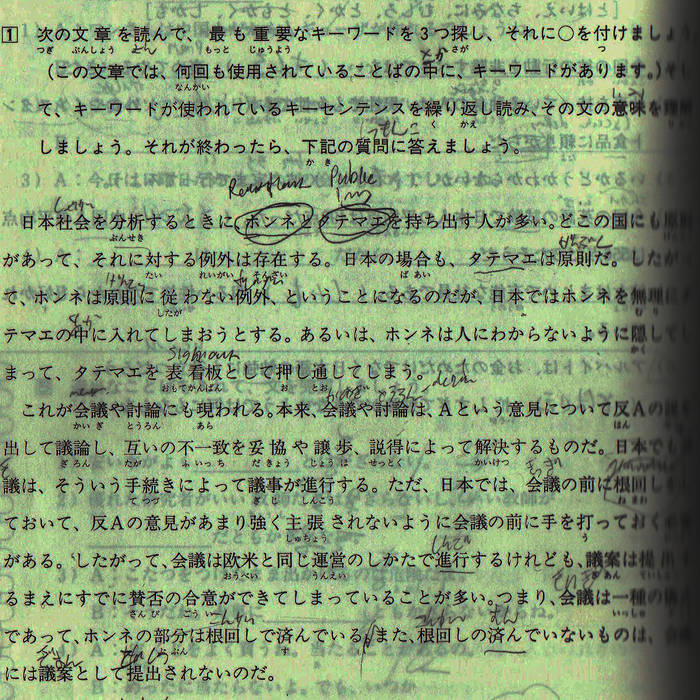 1 次の文章を読んで、最も重要なキーワードを3つ探し、それに○を付けましょ
(この文章では、何回も使用されていることばの中に、キーワードがあります。)そ
て、キーワードが使われているキーセンテンスを繰り返し読み、その文の意味を
しましょう。それが終わったら、下記の質問に答えましょう。
Public
日本社会を分析するときに、ホンネとタテマエを持ち出す人が多い。どこの国にも原
があって、それに対する例外は存在する。日本の場合も、タテマエは原則だ。したが
で、ホンネは原則に従わない例外、ということになるのだが、日本ではホンネを無理に
テマエの中に入れてしまおうとする。あるいは、ホンネは人にわからないように隠して
まって、タテマエを表看板として押し通してしまう。
これが会議や討論にも現われる。本来、会議や討論は、Aという意見について反Aの
出して議論し、互いの不一致を妥協や譲歩、説得によって解決するものだ。日本でも
議は、そういう手続きによって議事が進行する。ただ、日本では、会議の前に根回し
ておいて、反Aの意見があまり強く主張されないように会議の前に手を打っておく
がある。したがって、会議は欧米と同じ運営のしかたで進行するけれども、議案は提出
るまえにすでに賛否の合意ができてしまっていることが多い。つまり、会議は一種の
であって、ホンネの部分は根回しで済んでいる。また、根回しの済んでいないものは、
には議案として提出されないのだ。